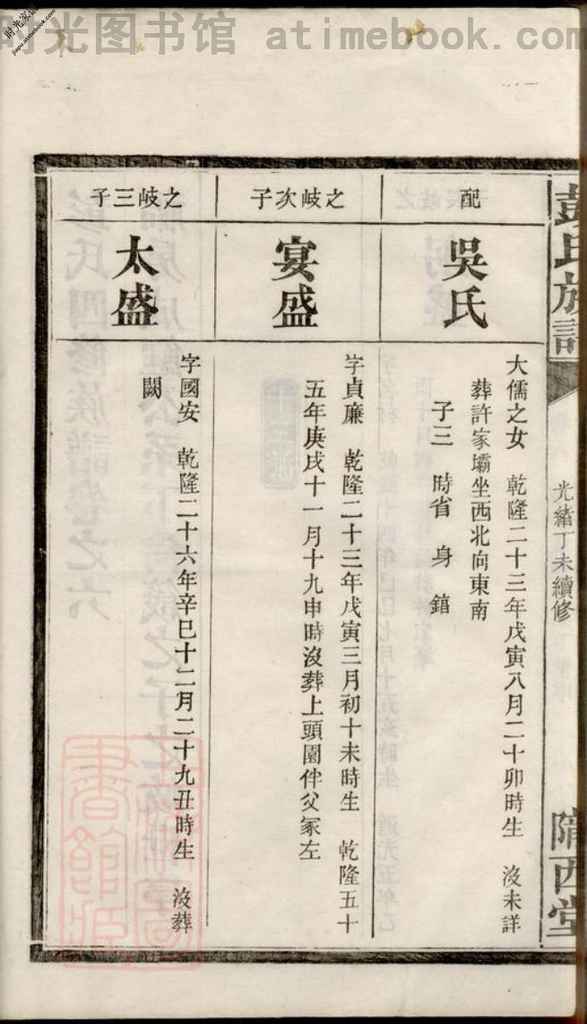 时光图书馆 - atimebook.com
彭氏族譜
光緒丁未續修
隴西堂
配
吳氏
大儒之女 乾隆二十三年戊寅八月二十卯時生 沒未詳
葬許家壩坐西北向東南
子三 時省 身 錧
之岐次子
宴盛
字貞廉 乾隆二十三年戊寅三月初十未時生 乾隆五十
五年庚戌十一月十九申時沒葬上頭園伴父冢左
之岐三子
太盛
字國安 乾隆二十六年辛巳十二月二十九丑時生 沒葬
闕